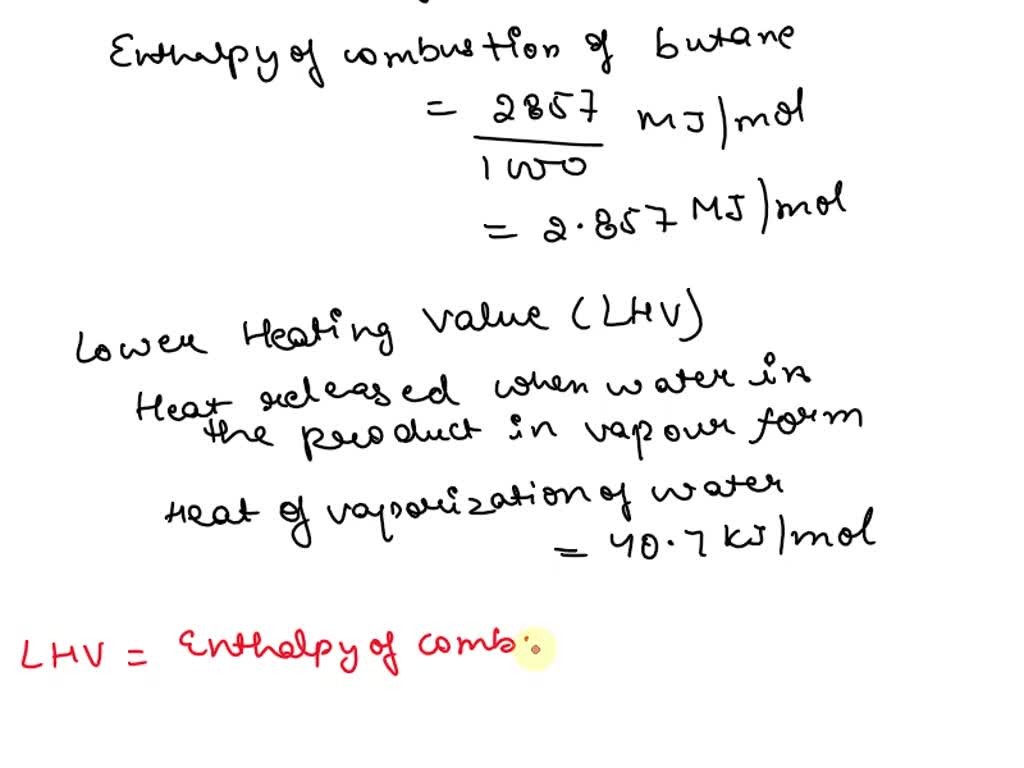 Enthalpy of combustion of butane
= 2857 MJ/mol
1000
= 2.857 MJ/mol
Lower Heating Value (LHV)
Heat released when water is
the product in vapour form
Heat of vaporization of water
= 40.7 kJ/mol
LHV = Enthalpy of comb.